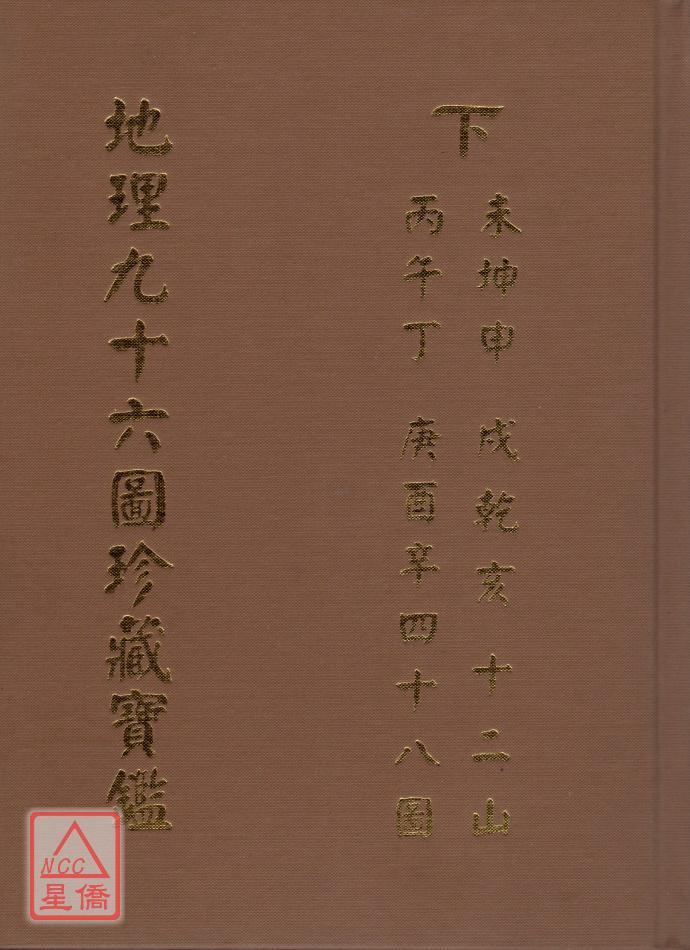 下
未坤申 戌乾亥 十二山
丙午丁 庚酉辛四十八圖
地理九十六圖珍藏寶鑑
NCC
星僑